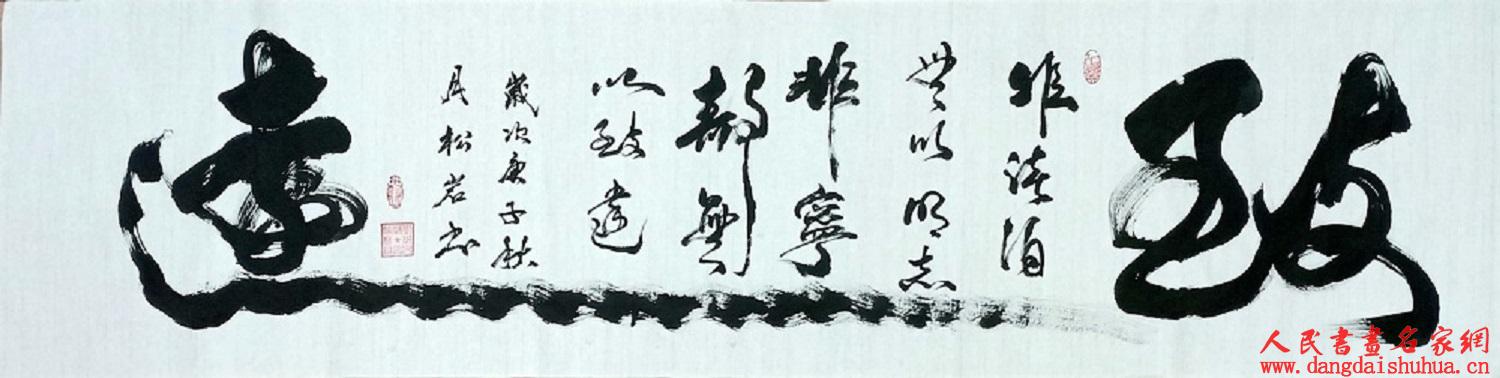 致
非淡泊
無以明志
非寧
靜無
以致遠
歲次庚子秋
月松岩书
遠
人民書畫名家網
www.dangdaishuhua.cn